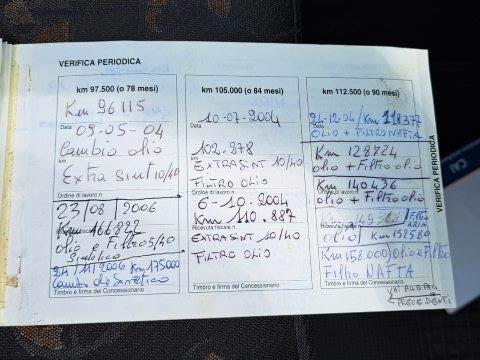 VERIFICA PERIODICA
km 97.500 (o 78 mesi)
Km 96115
Data
09-05-04
Cambio olio
km
Extra sint 10/40
Ordine di lavoro n.
23/08/2006
Km 166822
olio e Filtro 5/40
Sintetico
24/11/2006 Km 175000
Cambio de Sintetico
Timbro e firma del Concessionario
km 105.000 (o 84 mesi)
10-07-2004
Data
102.878
km
EXTRASINT 10/40
FILTRO OLIO
Ordine di lavoro n.
6-10-2004
Km 110.887
Ricevuta fiscale n.
EXTRASINT 10/40
FILTRO OLIO
Timbro e firma del Concessionario
km 112.500 (o 90 mesi)
24-12-04/Km 118377
Data
OLIO + FILTRO NAFTA
Km 128724
olio + Filtro olio
Km 140436
Ordine di lavoro n.
olio + Filtro olio
Km
Ricevuta fiscale n.
olio / Km 152580
Km 158.000/olio e Filtro
Filtro NAFTA
Timbro e firma del Concessionario
PRECEDENTI
VERIFICA PERIODICA